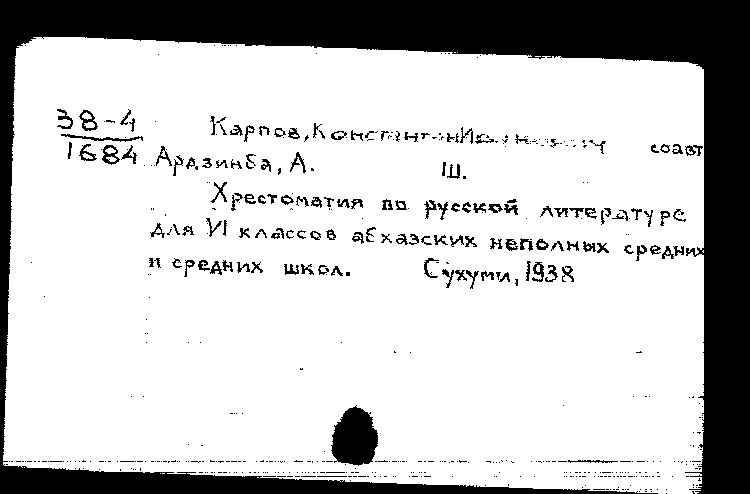 38-4
1684
Карпов, Константин Иванович соавт
Ардзинба, А. Ш.
Хрестоматия по русской литературе
для VI классов абхазских неполных средних
и средних школ. Сухуми, 1938